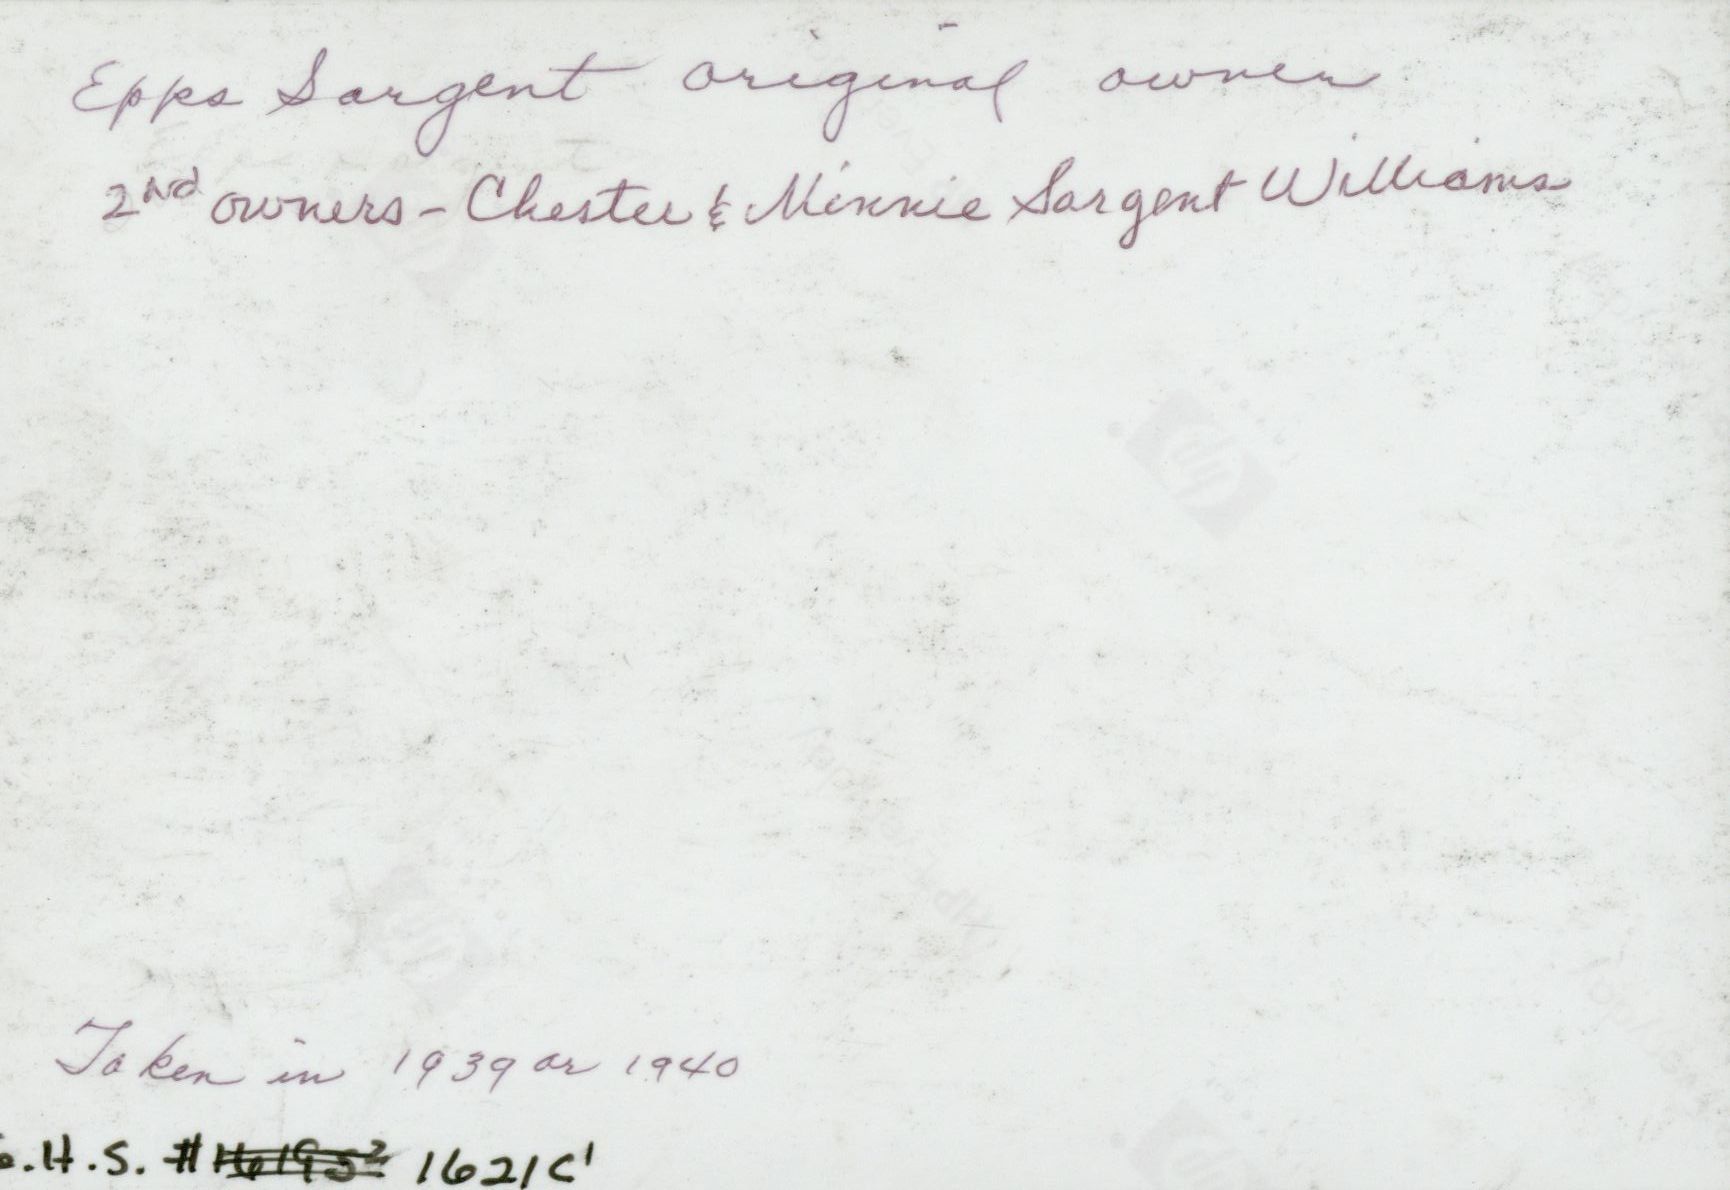 Epps Sargent original owner
2nd owners - Chester & Minnie Sargent Williams
Taken in 1939 or 1940
.H.S. # 1621C1